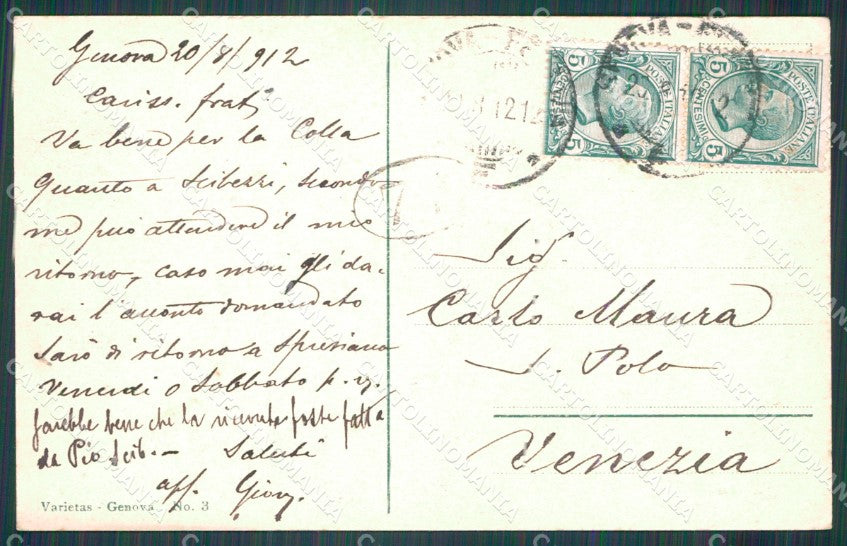 Genova 20/8/912
Cariss. frat.
Va bene per la Colla
Quanto a Scibezzi, secondo
me può attendere il mio
ritorno, caso mai gli da-
rai l'acconto domandato
Sarò di ritorno a Spresiano
Venerdi o Sabbato p. v.
farebbe bene che la ricevuta fosse fatta
da Pio Scib. - Saluti
aff. Giov.
Varietas - Genova No. 3
POSTE ITALIANE
CENTESIMI
5
5
POSTE ITALIANE
5
5
Sig.
Carlo Maura
S. Polo
Venezia
CARTOLINOMANIA